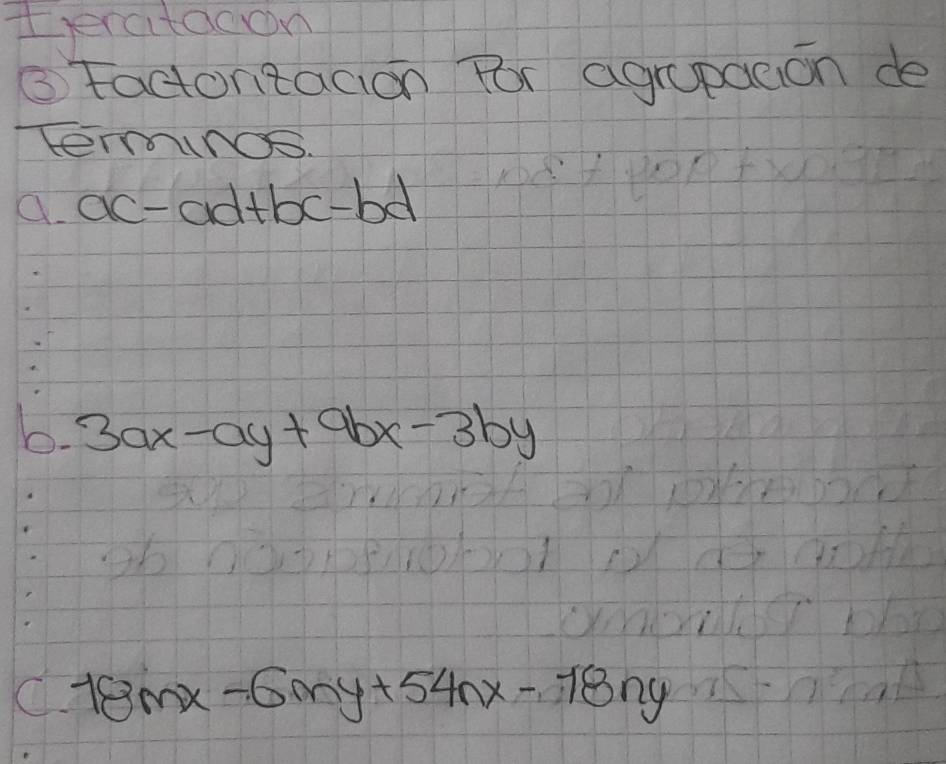 Ejercitacion
③ Factorización Por agrupación de
Términos.
a. ac-ad+bc-bd
b. 3ax-ay+9bx-3by
c. 18mx-6my+54nx-18ny